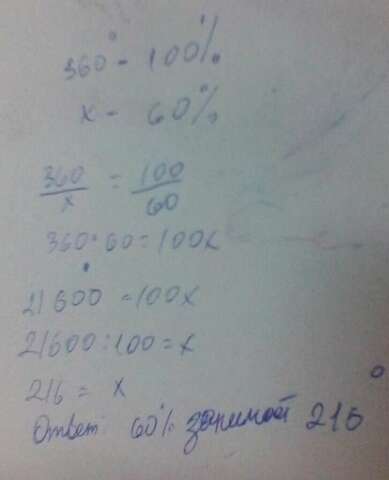 360° - 100%
x - 60%
360/x = 100/60
360·60=100x
21600 =100x
21600:100=x
216 = x
Ответ: 60% занимает 216°